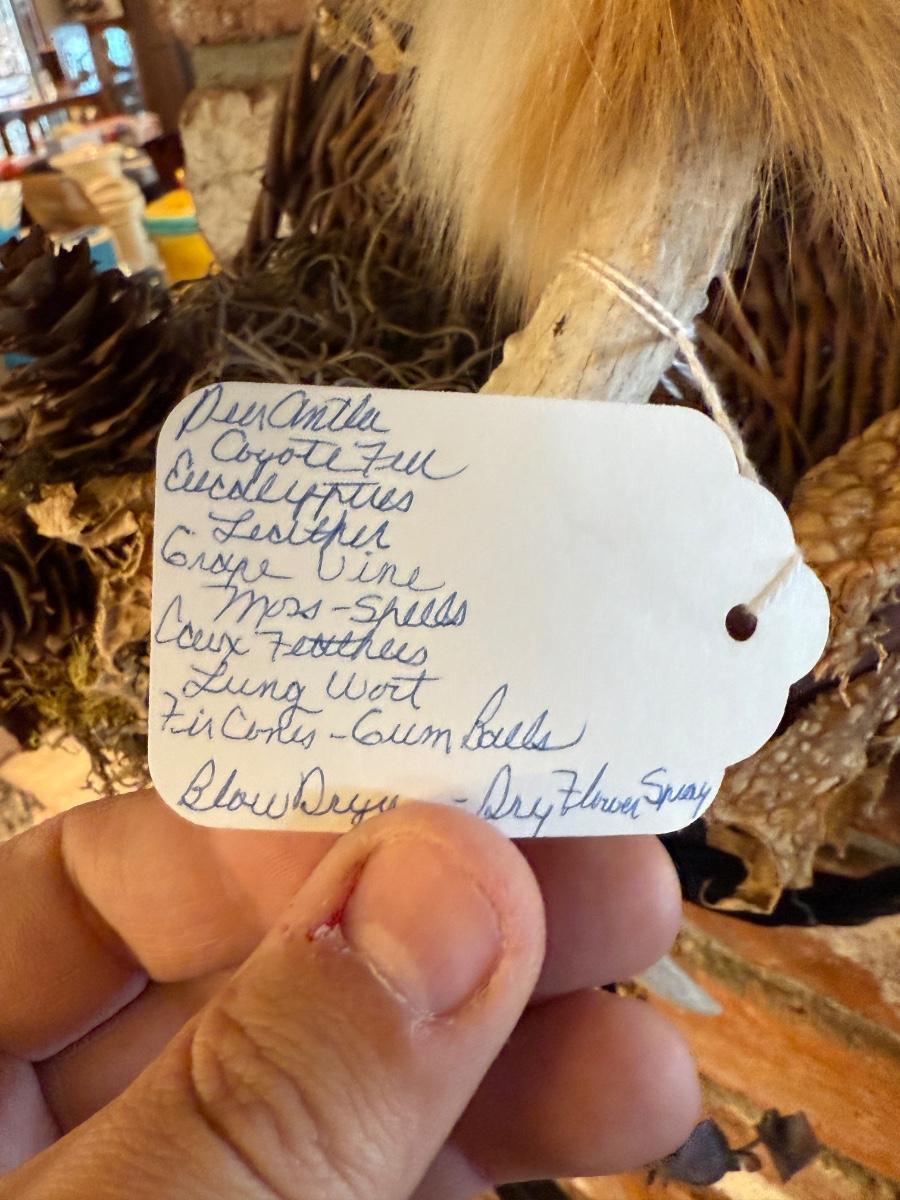 Deer Antler
Coyote Fur
Eucalyptus
Leather
Grape Vine
Moss - Sheels
Faux Feathers
Lung Wort
Fir Cones - Gum Balls
Blow Dryer - Dry Flower Spray